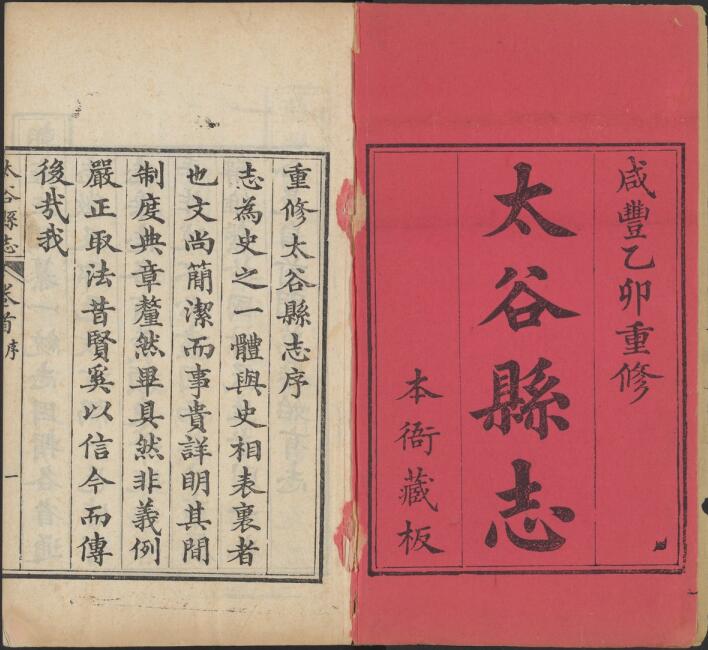 咸豐乙卯重修
太谷縣志
本衙藏板
重修太谷縣志序
志為史之一體與史相表裏者
也文尚簡潔而事貴詳明其間
制度典章釐然畢具然非義例
嚴正取法昔賢奚以信今而傳
後哉我
太谷縣志 卷首序 一